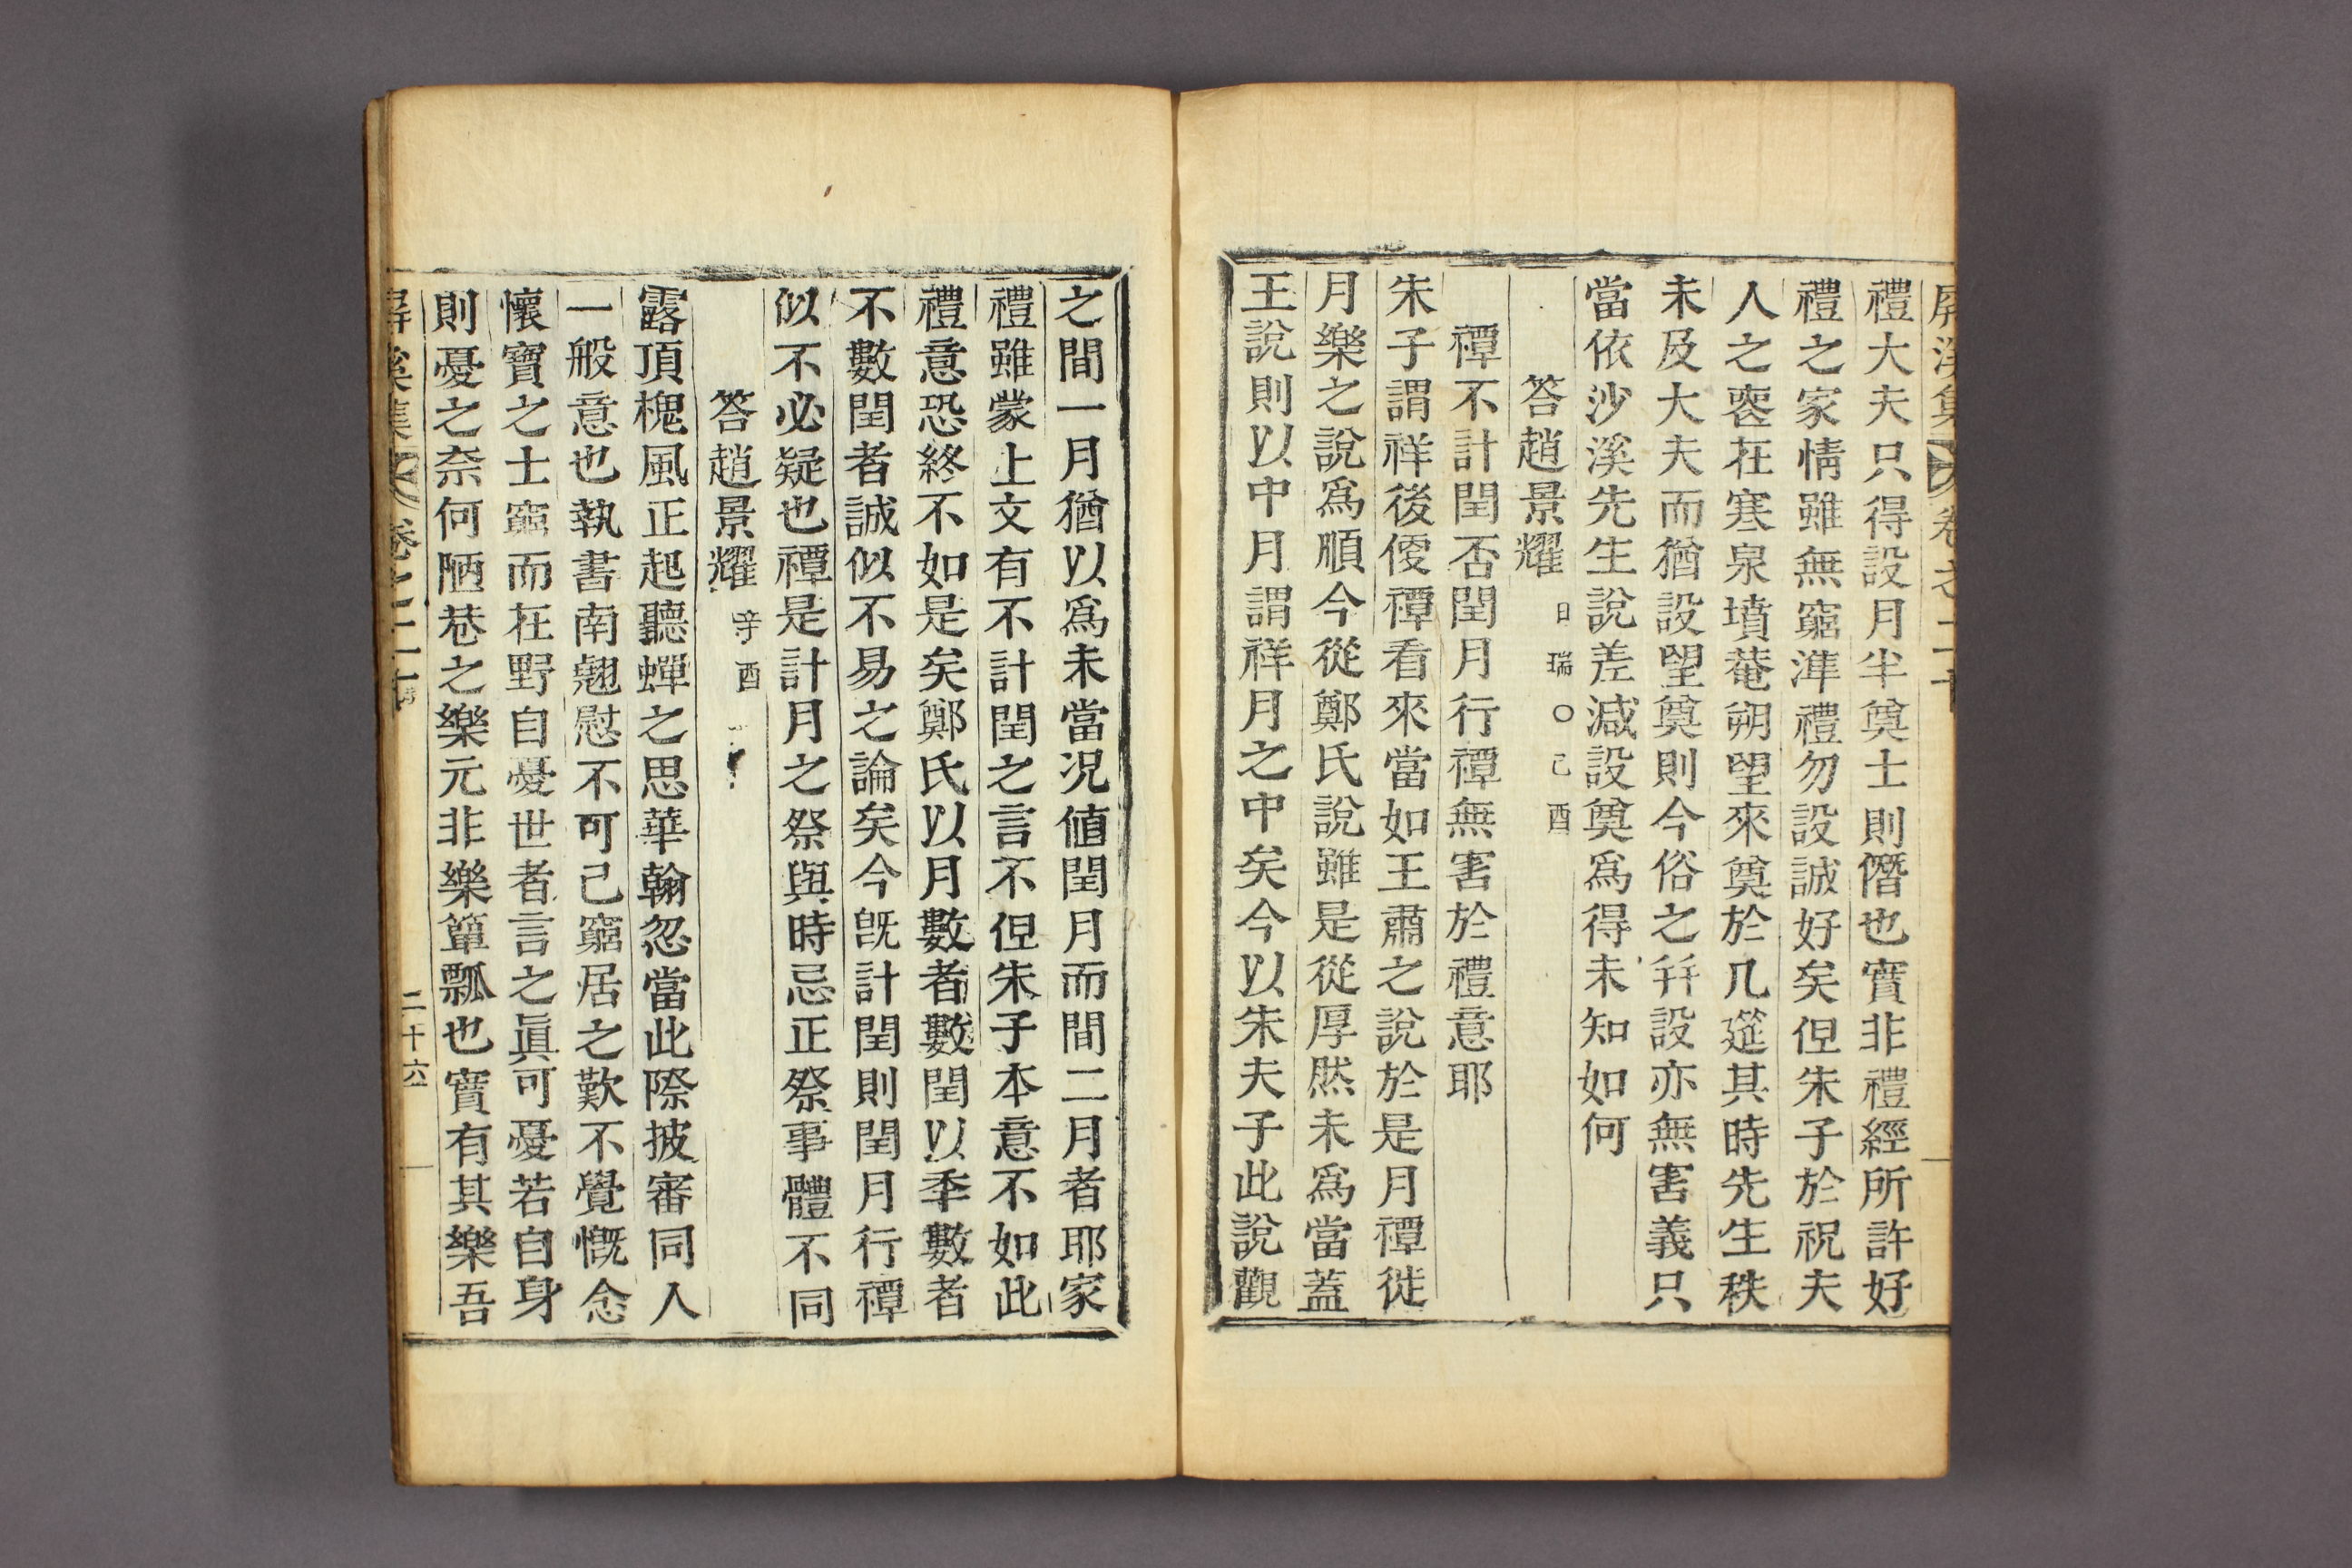 禮大夫只得設月半奠士則僭也實非禮經所許好
禮之家情雖無窮準禮勿設誠好矣但朱子於祝夫
人之喪在寒泉墳菴朔望來奠於几筵其時先生秩
未及大夫而猶設望奠則今俗之幷設亦無害義只
當依沙溪先生說差減設奠爲得未知如何
答趙景耀 日瑞○己酉
禫不計閏否閏月行禫無害於禮意耶
朱子謂祥後便禫看來當如王肅之說於是月禫徙
月樂之說爲順今從鄭氏說雖是從厚然未爲當蓋
王說則以中月謂祥月之中矣今以朱夫子此說觀
之間一月猶以爲未當况値閏月而間二月者耶家
禮雖蒙上文有不計閏之言不但朱子本意不如此
禮意恐終不如是矣鄭氏以月數者數閏以年數者
不數閏者誠似不易之論矣今旣計閏則閏月行禫
似不必疑也禫是計月之祭與時忌正祭事體不同
答趙景耀 辛酉
露頂槐風正起聽蟬之思華翰忽當此際披審同人
一般意也執書南翹慰不可已窮居之歎不覺慨念
懷寶之士窮而在野自憂世者言之眞可憂若自身
則憂之奈何陋巷之樂元非樂簞瓢也實有其樂吾
屛溪集 卷之二十 二十六